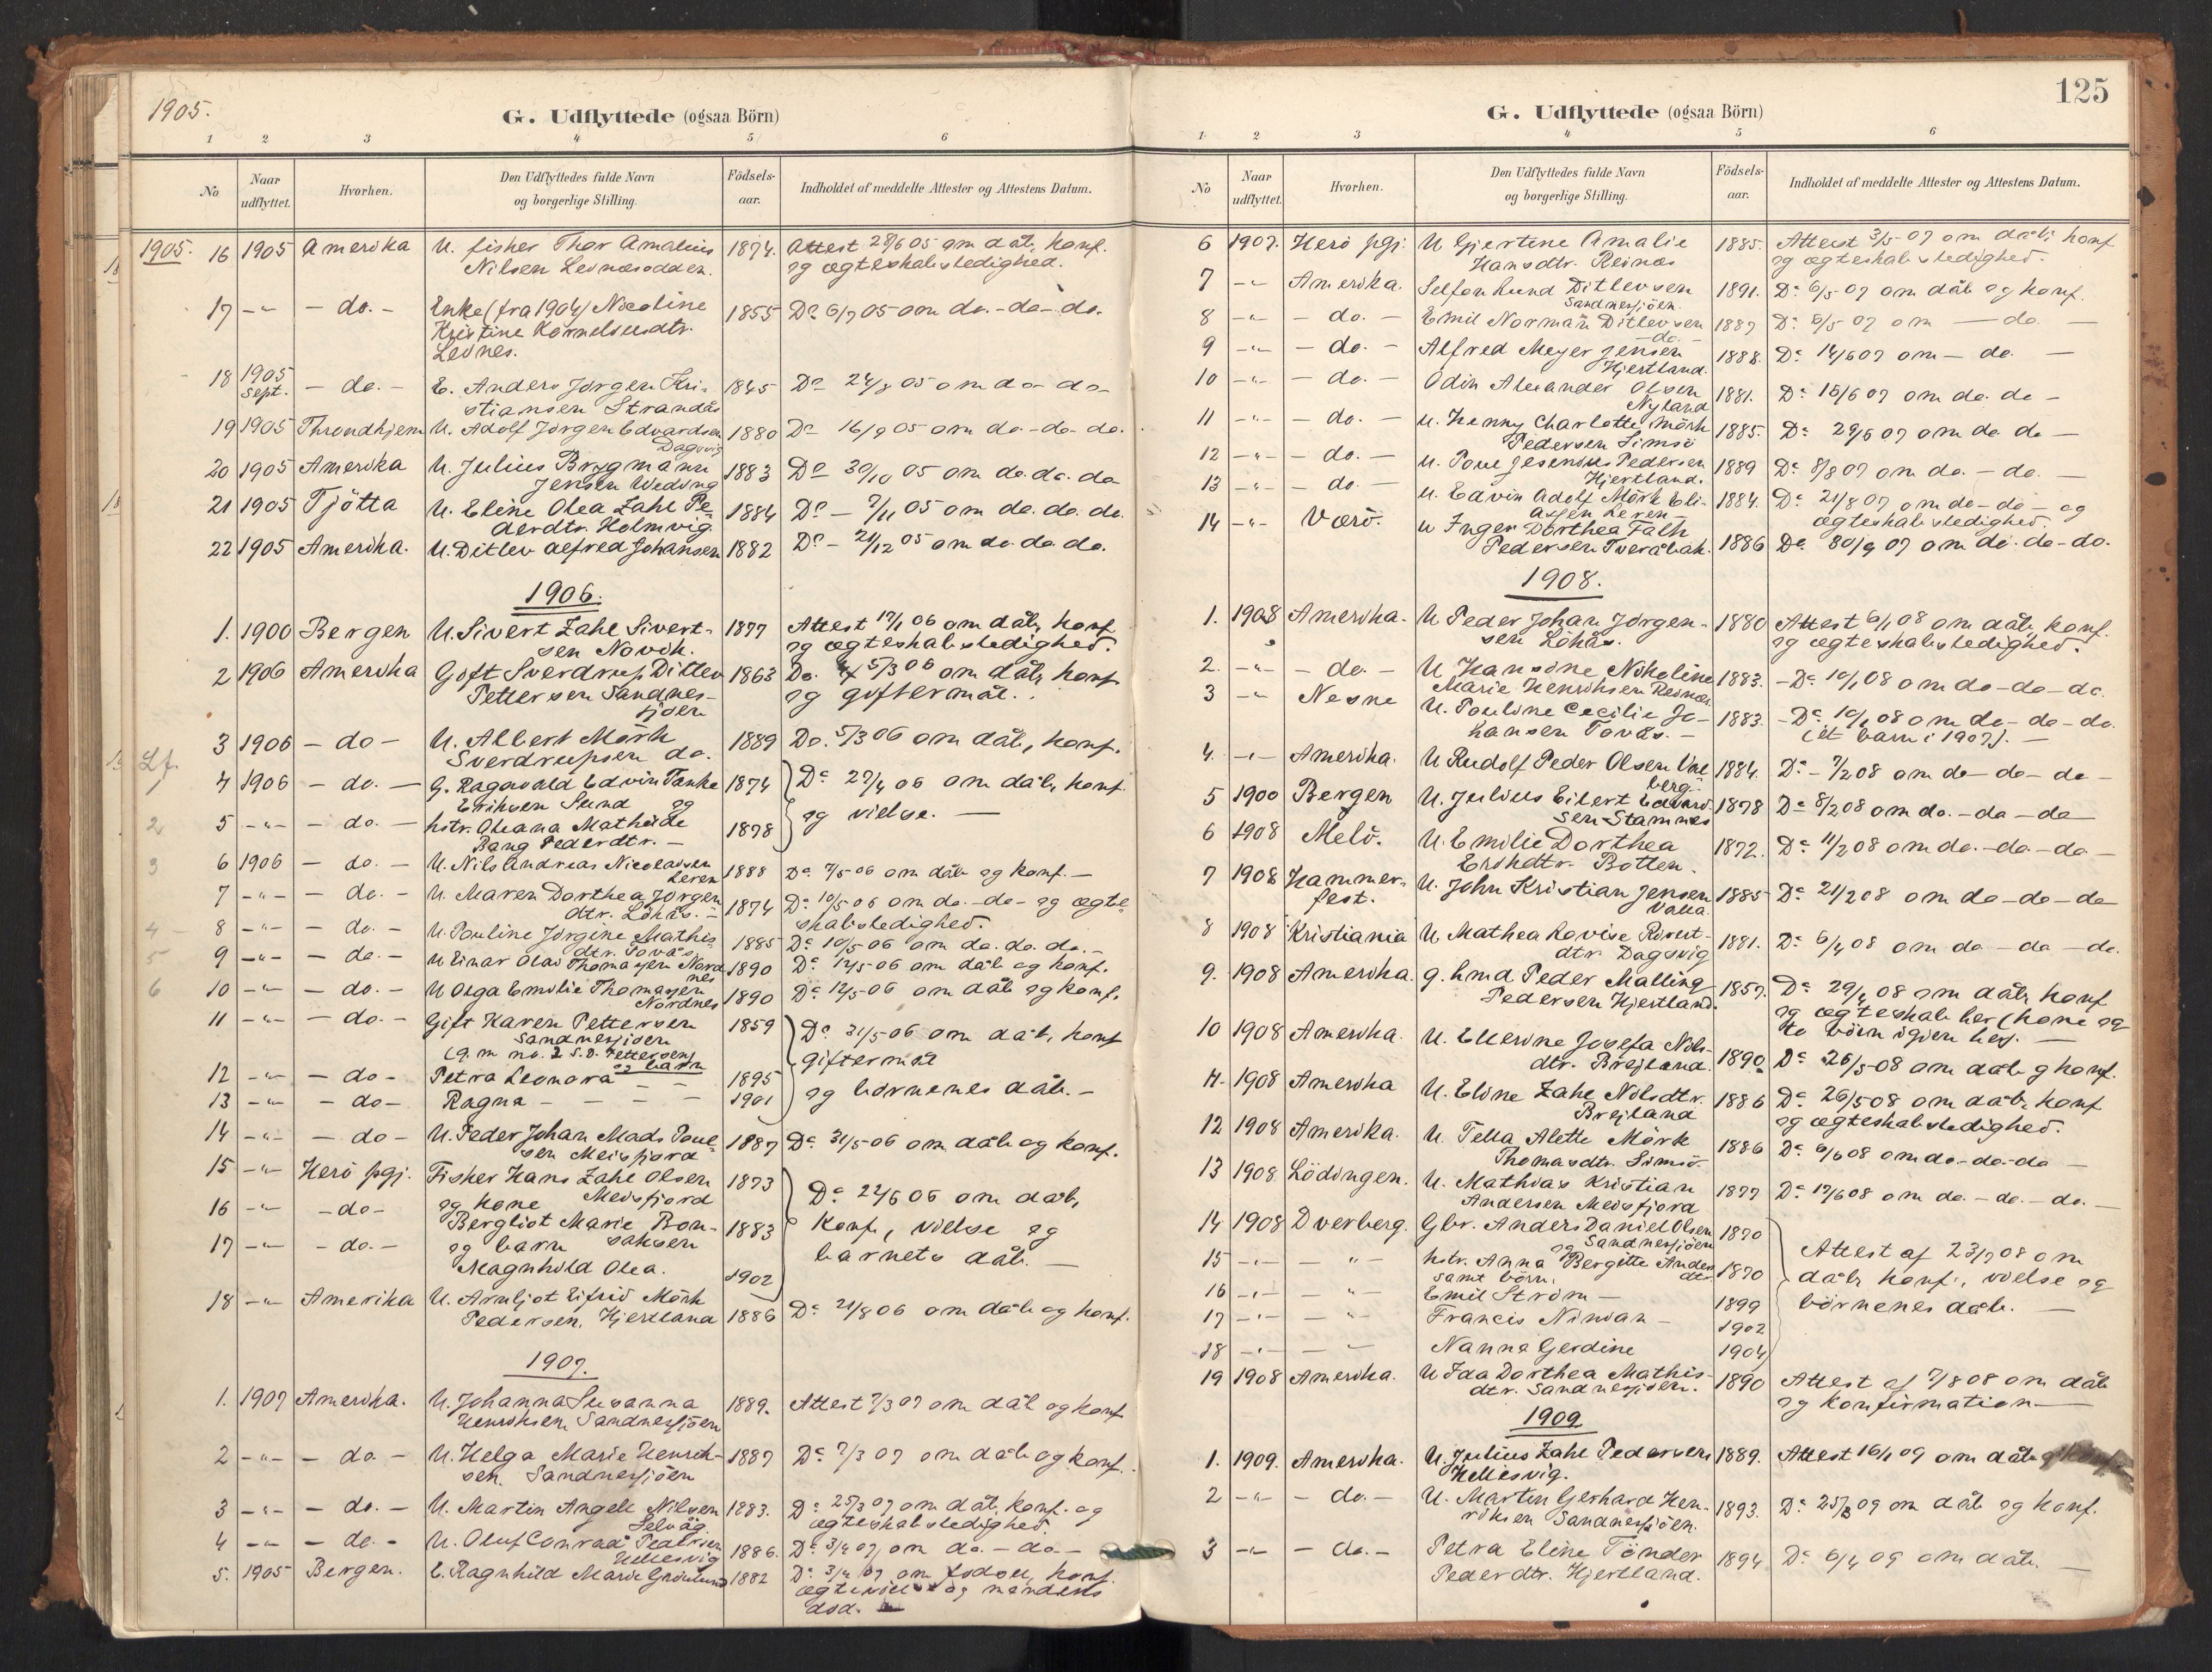 1905.
G. Udflyttede (ogsaa Börn)
1 2 3 4 5 6
No Naar udflyttet. Hvorhen. Den Udflyttedes fulde Navn og borgerlige Stilling. Födsels-aar. Indholdet af meddelte Attester og Attestens Datum.
1905. 16 1905 Amerika U. fisker Thor Amalius 1874. Attest 28/6 05 om dåb, konf.
Nilsen Leinesodden. og ægteskabsledighed.
17 -"- - do. - Enke (fra 1904) Nicoline 1855 Do 6/7 05 om do. - do - do.
Kristine Kornelseusdtr.
Leines.
18 1905 Sept. - do. - E. Anders Jörgen Kri- 1845 Do 24/8 05 om do - do -
stiansen Strandås
19 1905 Throndhjem U. Adolf Jörgen Edvardsen 1880 Do 16/9 05 om do - do - do.
Dagsvig
20 1905 Amerika U. Julius Brygmann 1883 Do 30/10 05 om do. do. do
Jensen Weding
21 1905 Tjötta U. Eline Olea Zahl Pe- 1884 Do - 7/11 05 om do. do. do.
derdtr. Holmvig.
22 1905 Amerika. U. Ditlev Alfred Johansen 1882 Do - 21/12 05 om do. do do.
1906.
1. 1900 Bergen U. Sivert Zahl Sivert- 1877 Attest 17/1 06 om dåb, konf.
sen Novik. og ægteskabsledighed.
2 1906 Amerika Gift Sverdrup Ditlev 1863 Do. 5/3 06 om dåb, konf
Pettersen Sandnes- og giftermål.
sjöen
3 1906 - do - U. Albert Mörk 1889 Do. 5/3 06 om dåb, konf.
Sverdrupsen do.
4 1906 - do. - G. Ragnvald Edvin Tanke 1874 Do 27/4 06 om dåb, konf.
Eriksen Sund og
5 -"- - do. - hstr. Oleana Mathilde 1878 og vielse. -
Bang Pederdtr. -
6 1906 - do. - U. Nils Andreas Nicolaisen 1888 Do 7/5 06 om dåb og konf. -
Leren
7 -"- - do. - U. Maren Dorthea Jörgen 1874 Do 10/5 06 om do. - do - og ægte-
dtr. Lökås. - skabsledighed.
8 -"- - do. - U. Pauline Jörgine Mathis- 1885 Do 10/5 06 om do. do. do. -
dtr. Tovås
9 -"- - do. - U Einar Olai Thomassen Nord 1890 Do 12/5 06 om dåb og konf.
nes
10 -"- - do. - U Olga Emilie Thomassen 1890 Do 12/5 06 om dåb og konf.
Nordnes
11 -"- - do. - Gift Karen Pettersen 1859 Do 31/5 06 om dåb, konf
Sandnessjöen giftermål
(g. m no. 2 S. D. Pettersen)
og barn
12 -"- - do - Petra Leonora - - 1895
13 -"- - do - Ragna - - - - 1901 og börnenes dåb. -
14 -"- - do - U. Peder Johan Mads Poul- 1887 Do 31/5 06 om dåb og konf.
sen Meisfjord
15 -"- Herö pgj. Fisker Hans Zahl Olsen 1873 Do 22/6 06 om dåb,
Meisfjord
16 -"- - do - og kone
Bergliot Marie Bon- 1883 konf., vielse og
saksen
17 -"- - do. - og barn barnets dåb. -
Magnhild Olea. 1902
18 -"- Amerika U. Arnljot Eifrid Mörk
Pedersen, Hjertland 1886 Do 21/8 06 om dåb og konf.
1907.
1. 1907 Amerika. U. Johanna Susanna 1889. Attest 7/3 07 om dåb og konf
Henriksen Sandnessjöen
2 -"- - do. - U. Helga Marie Henrik- 1887 Do 7/3 07 om dåb og konf.
sen. Sandnessjöen
3 -"- - do. - U. Martin Angell Nilsen 1883. Do 25/3 07 om dåb, konf. og
Selvåg. ægteskabsledighed.
4 -"- - do. - U. Oluf Conrad Pedersen 1886. Do 3/4 07 om do. - do -
Hellesvig
5. 1905 Bergen. E. Ragnhild Marie Grönlund 1882 Do 3/4 07 om födsel, konf.
ægtevielse og mandens
död.
125
G. Udflyttede (ogsaa Börn)
1 2 3 4 5 6
No Naar udflyttet. Hvorhen. Den Udflyttedes fulde Navn og borgerlige Stilling. Födsels-aar. Indholdet af meddelte Attester og Attestens Datum.
6 1907. Herö pgj. U Gjertine Amalie 1885. Attest 3/5 07 om dåb, konf
Hansdtr. Reinæs og ægteskabsledighed.
7 -"- Amerika. Selfon Lund Ditlevsen 1891. Do 6/5 07 om dåb og konf.
Sandnessjöen
8 -"- - do. - Emil Norman Ditlevsen 1887 Do 6/5 07 om - do. -
- do. -
9 -"- - do. - Alfred Meyer Jensen 1888. Do 14/6 07 om - do. -
Hjertland.
10 -"- - do. - Odin Alexander Olsen 1881. Do 15/6 07 om do. do -
Nyland
11 -"- - do. - U. Henny Charlotte Mörk 1885. Do 29/6 07 om do. do -
Pedersen Simsö
12 -"- - do. - U. Poul Jesenius Pedersen 1889 Do 8/8 07 om do. - do. -
Hjertland.
13 -"- - do. - U. Edvin Adolf Mörk Eli- 1884. Do 21/8 07 om do - do - og
assen Leren - ægteskabsledighed.
14 -"- Værö. U Inger Dorthea Falk
Pedersen Tveråbak. 1886 Do. 30/9 07 om do. do - do.
1908.
1. 1908 Amerika. U Peder Johan Jörgen- 1880 Attest 6/1 08 om dåb, konf.
sen Lökås. og ægteskabsledighed.
2. -"- - do. - U Hansine Nikoline 1883. - Do 10/1 08 om do - do - do.
Marie Henriksen Reinæs
3 -"- Nesne U. Pauline Cecilie Jo- 1883. - Do 10/1 08 om do - do - do.
hansen Tovås. - (et barn i 1907). -
4. -"- Amerika. U Rudolf Peder Olsen Ul- 1884. Do - 7/2 08 om do - do - do -
berg.
5 1900 Bergen U. Julius Eilert Edvard- 1878 Do 8/2 08 om do. - do - do
sen Stamnes
6 1908 Melö. U. Emilie Dorthea 1872. Do 11/2 08 om do. - do. - do -
Erikdtr. Botten.
7 1908 Hammer- U. John Kristian Jensen 1885 Do 21/2 08 om do - do - do
fest. Valla
8 1908 Kristiania U. Mathea Lovise Sivert- 1881. Do 6/4 08 om do - do - do.
dtr. Dagsvig
9. 1908 Amerika. g. hmd Peder Malling 1857. Do 29/4 08 om dåb, konf
Pedersen Hjertland. og ægteskab her (kone og
to börn igjen her). -
10 1908 Amerika. U. Ellerine Josefa Nils-
dtr. Breiland. 1890 Do 26/5 08 om dåb og konf.
11. 1908 Amerika U. Eline Zahl Nilsdtr. 1886 Do 26/5 08 om dåb, konf
Breiland og ægteskabsledighed.
12 1908 Amerika. U. Tella Alette Mörk 1886 Do 9/6 08 om do - do - do -
Thomasdtr. Simsö.
13 1908 Lödingen. U. Mathias Kristian 1877 Do 17/6 08 om do. - do. - do. -
Andersen Meisfjord
14 1908 Dverberg. Gbr. Anders Daniel Olsen 1870
Sandnessjöen
15 -"- - " - og hstr. Anna Bergitte Anders 1870 Attest af 23/7 08 om
dtr.
samt börn, dåb, konf., vielse og
16 -"- - " Emil Ström - 1899 börnenes dåb. -
17 -"- - " - Francis Ninian - 1902
18 -"- - " Nanna Gerdine 1904
19 1908 Amerika. U Ida Dorthea Mathis- 1890 Attest af 7/8 08 om dåb
dtr. Sandnessjöen. og konfirmation -
1909
1. 1909. Amerika. U. Julius Zahl Pedersen 1889. Attest 16/1 09 om dåb og konf.
Hellesvig.
2 -"- - do. - U. Martin Gerhard Hen- 1893. Do 25/3 09 om dåb og konf.
riksen Sandnessjöen.
3 -"- - do. - Petra Eline Tönder 1894 Do 6/4 09 om dåb. -
Pederdtr. Hjertland.